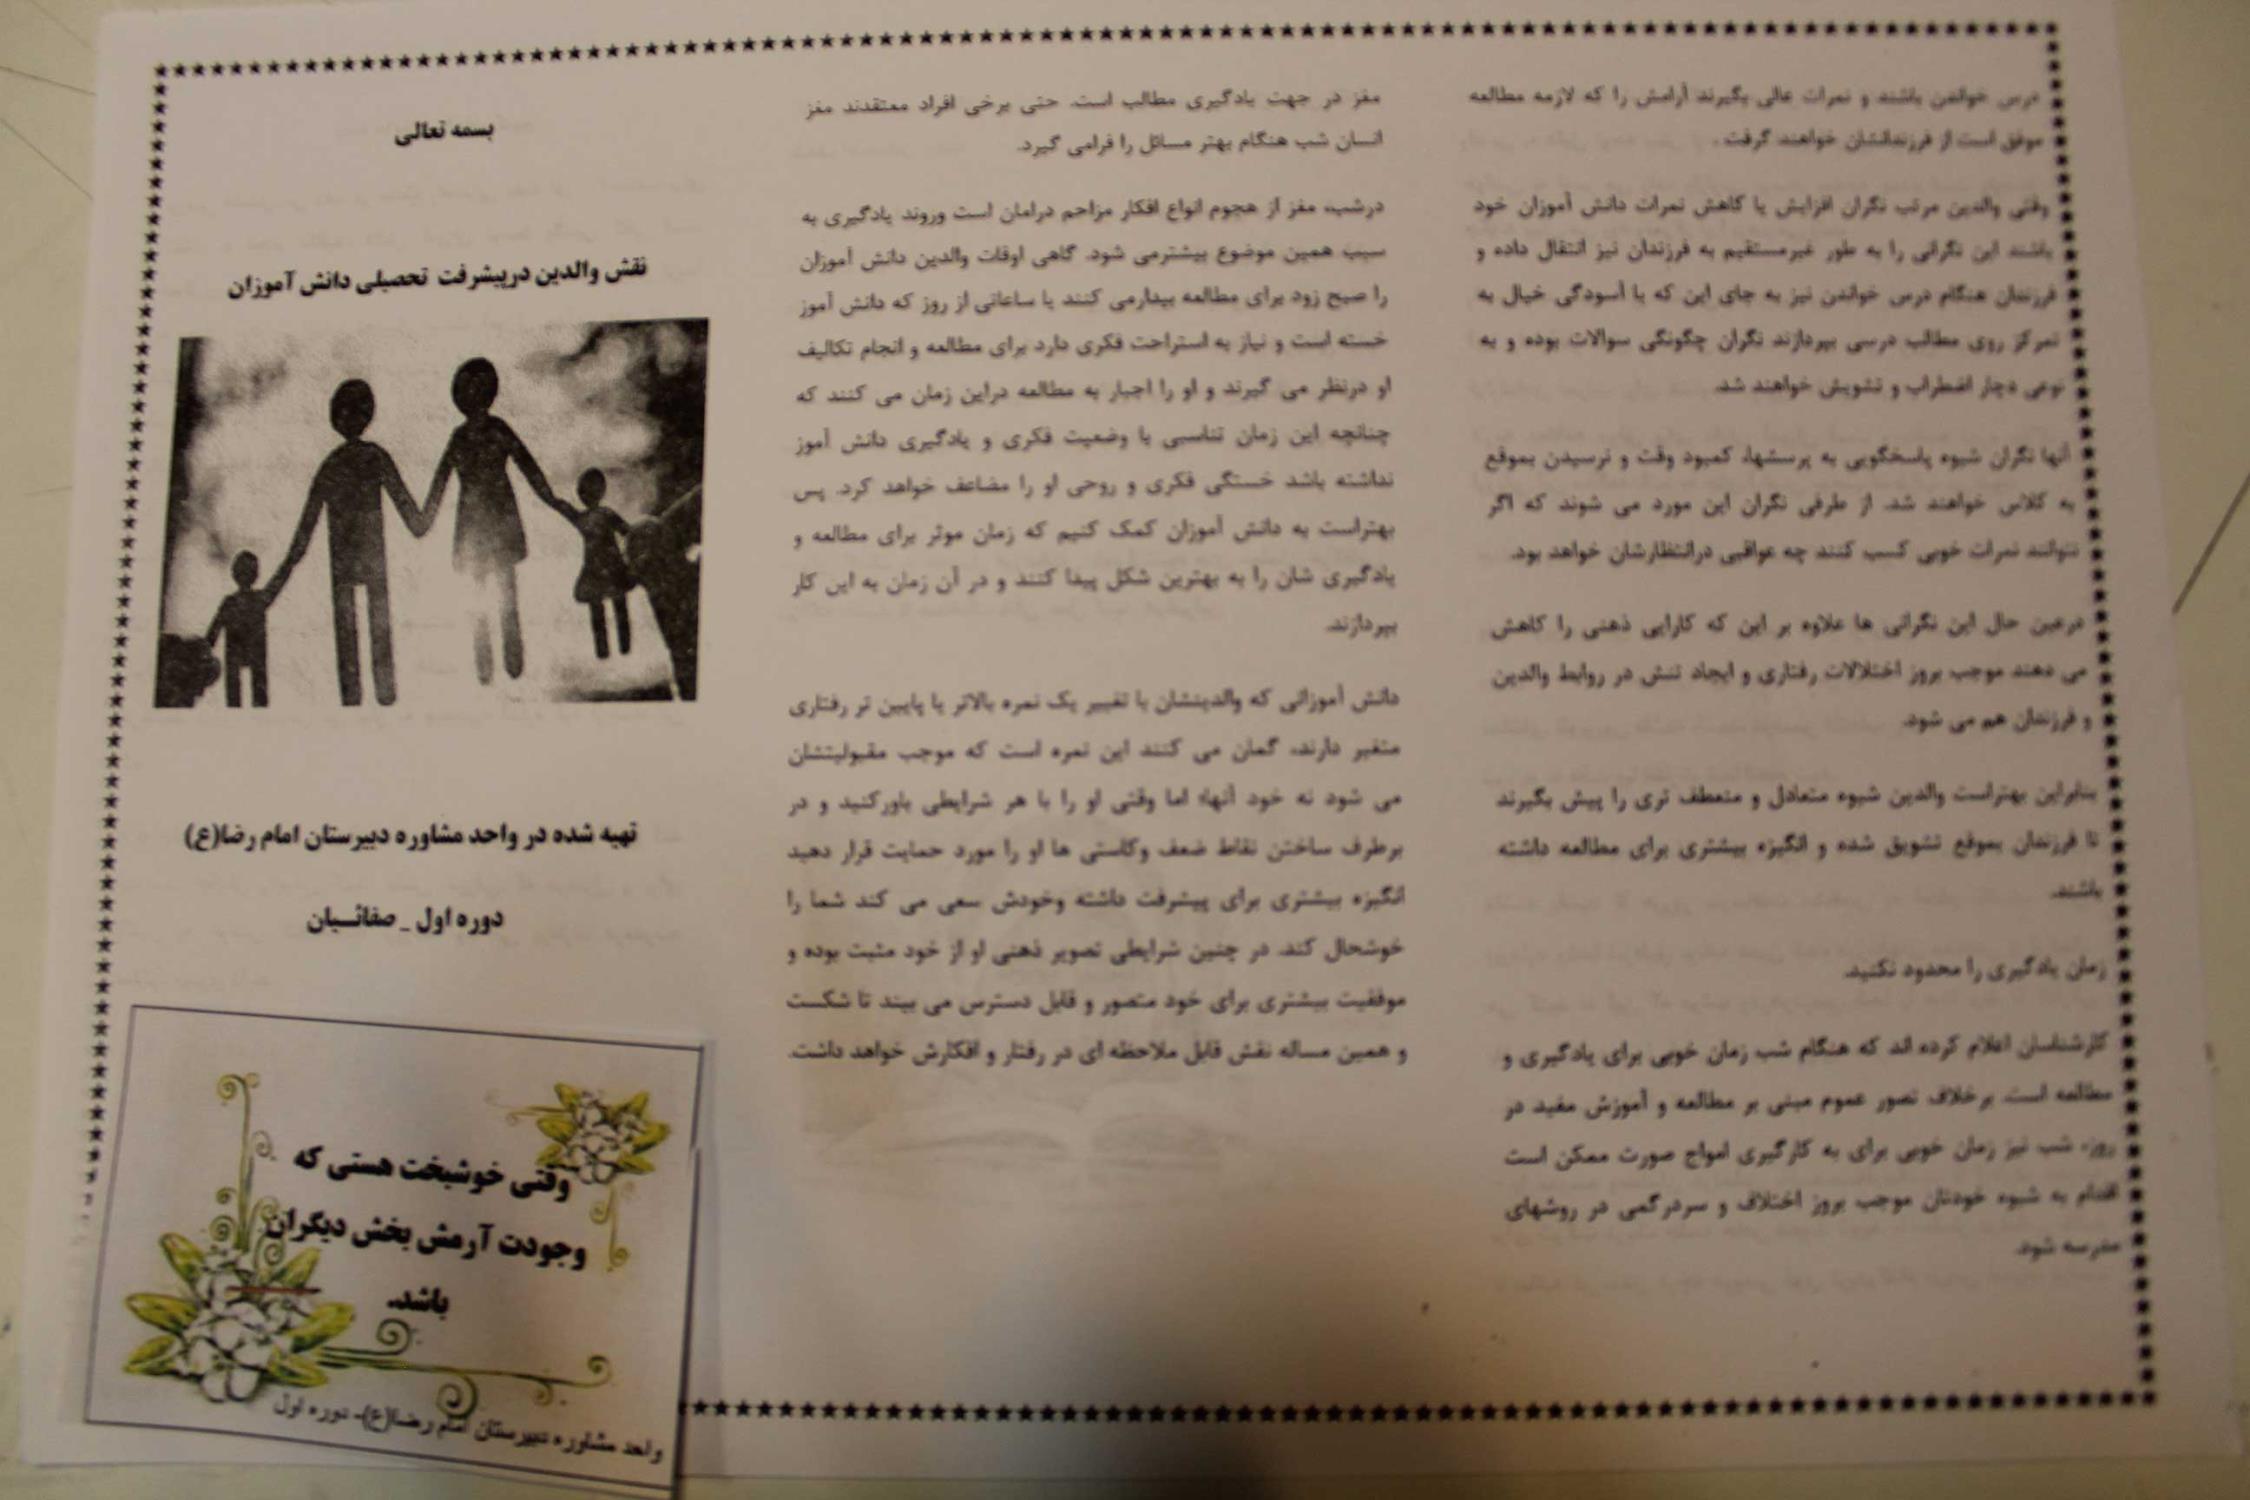 درس خواندن باشند و نمرات عالی بگیرند آرامش را که لازمه مطالعه
موفق است از فرزندانشان خواهند گرفت .
وقتی والدین مرتب نگران افزایش یا کاهش نمرات دانش آموزان خود
باشند این نگرانی را به طور غیرمستقیم به فرزندان نیز انتقال داده و
فرزندان هنگام درس خواندن نیز به جای این که با آسودگی خیال به
تمرکز روی مطالب درسی بپردازند نگران چگونگی سوالات بوده و به
نوعی دچار اضطراب و تشویش خواهند شد.
آنها نگران شیوه پاسخگویی به پرسشها، کمبود وقت و نرسیدن بموقع
به کلاس خواهند شد. از طرفی نگران این مورد می شوند که اگر
نتوانند نمرات خوبی کسب کنند چه عواقبی درانتظارشان خواهد بود.
درعین حال این نگرانی ها علاوه بر این که کارایی ذهنی را کاهش
می دهند موجب بروز اختلالات رفتاری و ایجاد تنش در روابط والدین
و فرزندان هم می شود.
بنابراین بهتراست والدین شیوه متعادل و منعطف تری را پیش بگیرند
تا فرزندان بموقع تشویق شده و انگیزه بیشتری برای مطالعه داشته
باشند.
زمان یادگیری را محدود نکنید.
کارشناسان اعلام کرده اند که هنگام شب زمان خوبی برای یادگیری و
مطالعه است. برخلاف تصور عموم مبنی بر مطالعه و آموزش مفید در
روز، شب نیز زمان خوبی برای به کارگیری امواج صورت ممکن است
اقدام به شیوه خودتان موجب بروز اختلاف و سردرگمی در روشهای
مدرسه شود.
مغز در جهت یادگیری مطالب است. حتی برخی افراد معتقدند مغز
انسان شب هنگام بهتر مسائل را فرامی گیرد.
درشب، مغز از هجوم انواع افکار مزاحم درامان است وروند یادگیری به
سبب همین موضوع بیشترمی شود. گاهی اوقات والدین دانش آموزان
را صبح زود برای مطالعه بیدارمی کنند یا ساعاتی از روز که دانش آموز
خسته است و نیاز به استراحت فکری دارد برای مطالعه و انجام تکالیف
او درنظر می گیرند و او را اجبار به مطالعه دراین زمان می کنند که
چنانچه این زمان تناسبی با وضعیت فکری و یادگیری دانش آموز
نداشته باشد خستگی فکری و روحی او را مضاعف خواهد کرد. پس
بهتراست به دانش آموزان کمک کنیم که زمان موثر برای مطالعه و
یادگیری شان را به بهترین شکل پیدا کنند و در آن زمان به این کار
بپردازند.
دانش آموزانی که والدینشان با تغییر یک نمره بالاتر یا پایین تر رفتاری
متغیر دارند، گمان می کنند این نمره است که موجب مقبولیتشان
می شود نه خود آنها؛ اما وقتی او را با هر شرایطی باورکنید و در
برطرف ساختن نقاط ضعف وکاستی ها او را مورد حمایت قرار دهید
انگیزه بیشتری برای پیشرفت داشته وخودش سعی می کند شما را
خوشحال کند. در چنین شرایطی تصویر ذهنی او از خود مثبت بوده و
موفقیت بیشتری برای خود متصور و قابل دسترس می بیند تا شکست
و همین مساله نقش قابل ملاحظه ای در رفتار و افکارش خواهد داشت.
بسمه تعالی
نقش والدین درپیشرفت تحصیلی دانش آموزان
تهیه شده در واحد مشاوره دبیرستان امام رضا(ع)
دوره اول _ صفائـیان
وقتی خوشبخت هستی که
وجودت آرمش بخش دیگران
باشد.
واحد مشاوره دبیرستان امام رضا(ع)- دوره اول